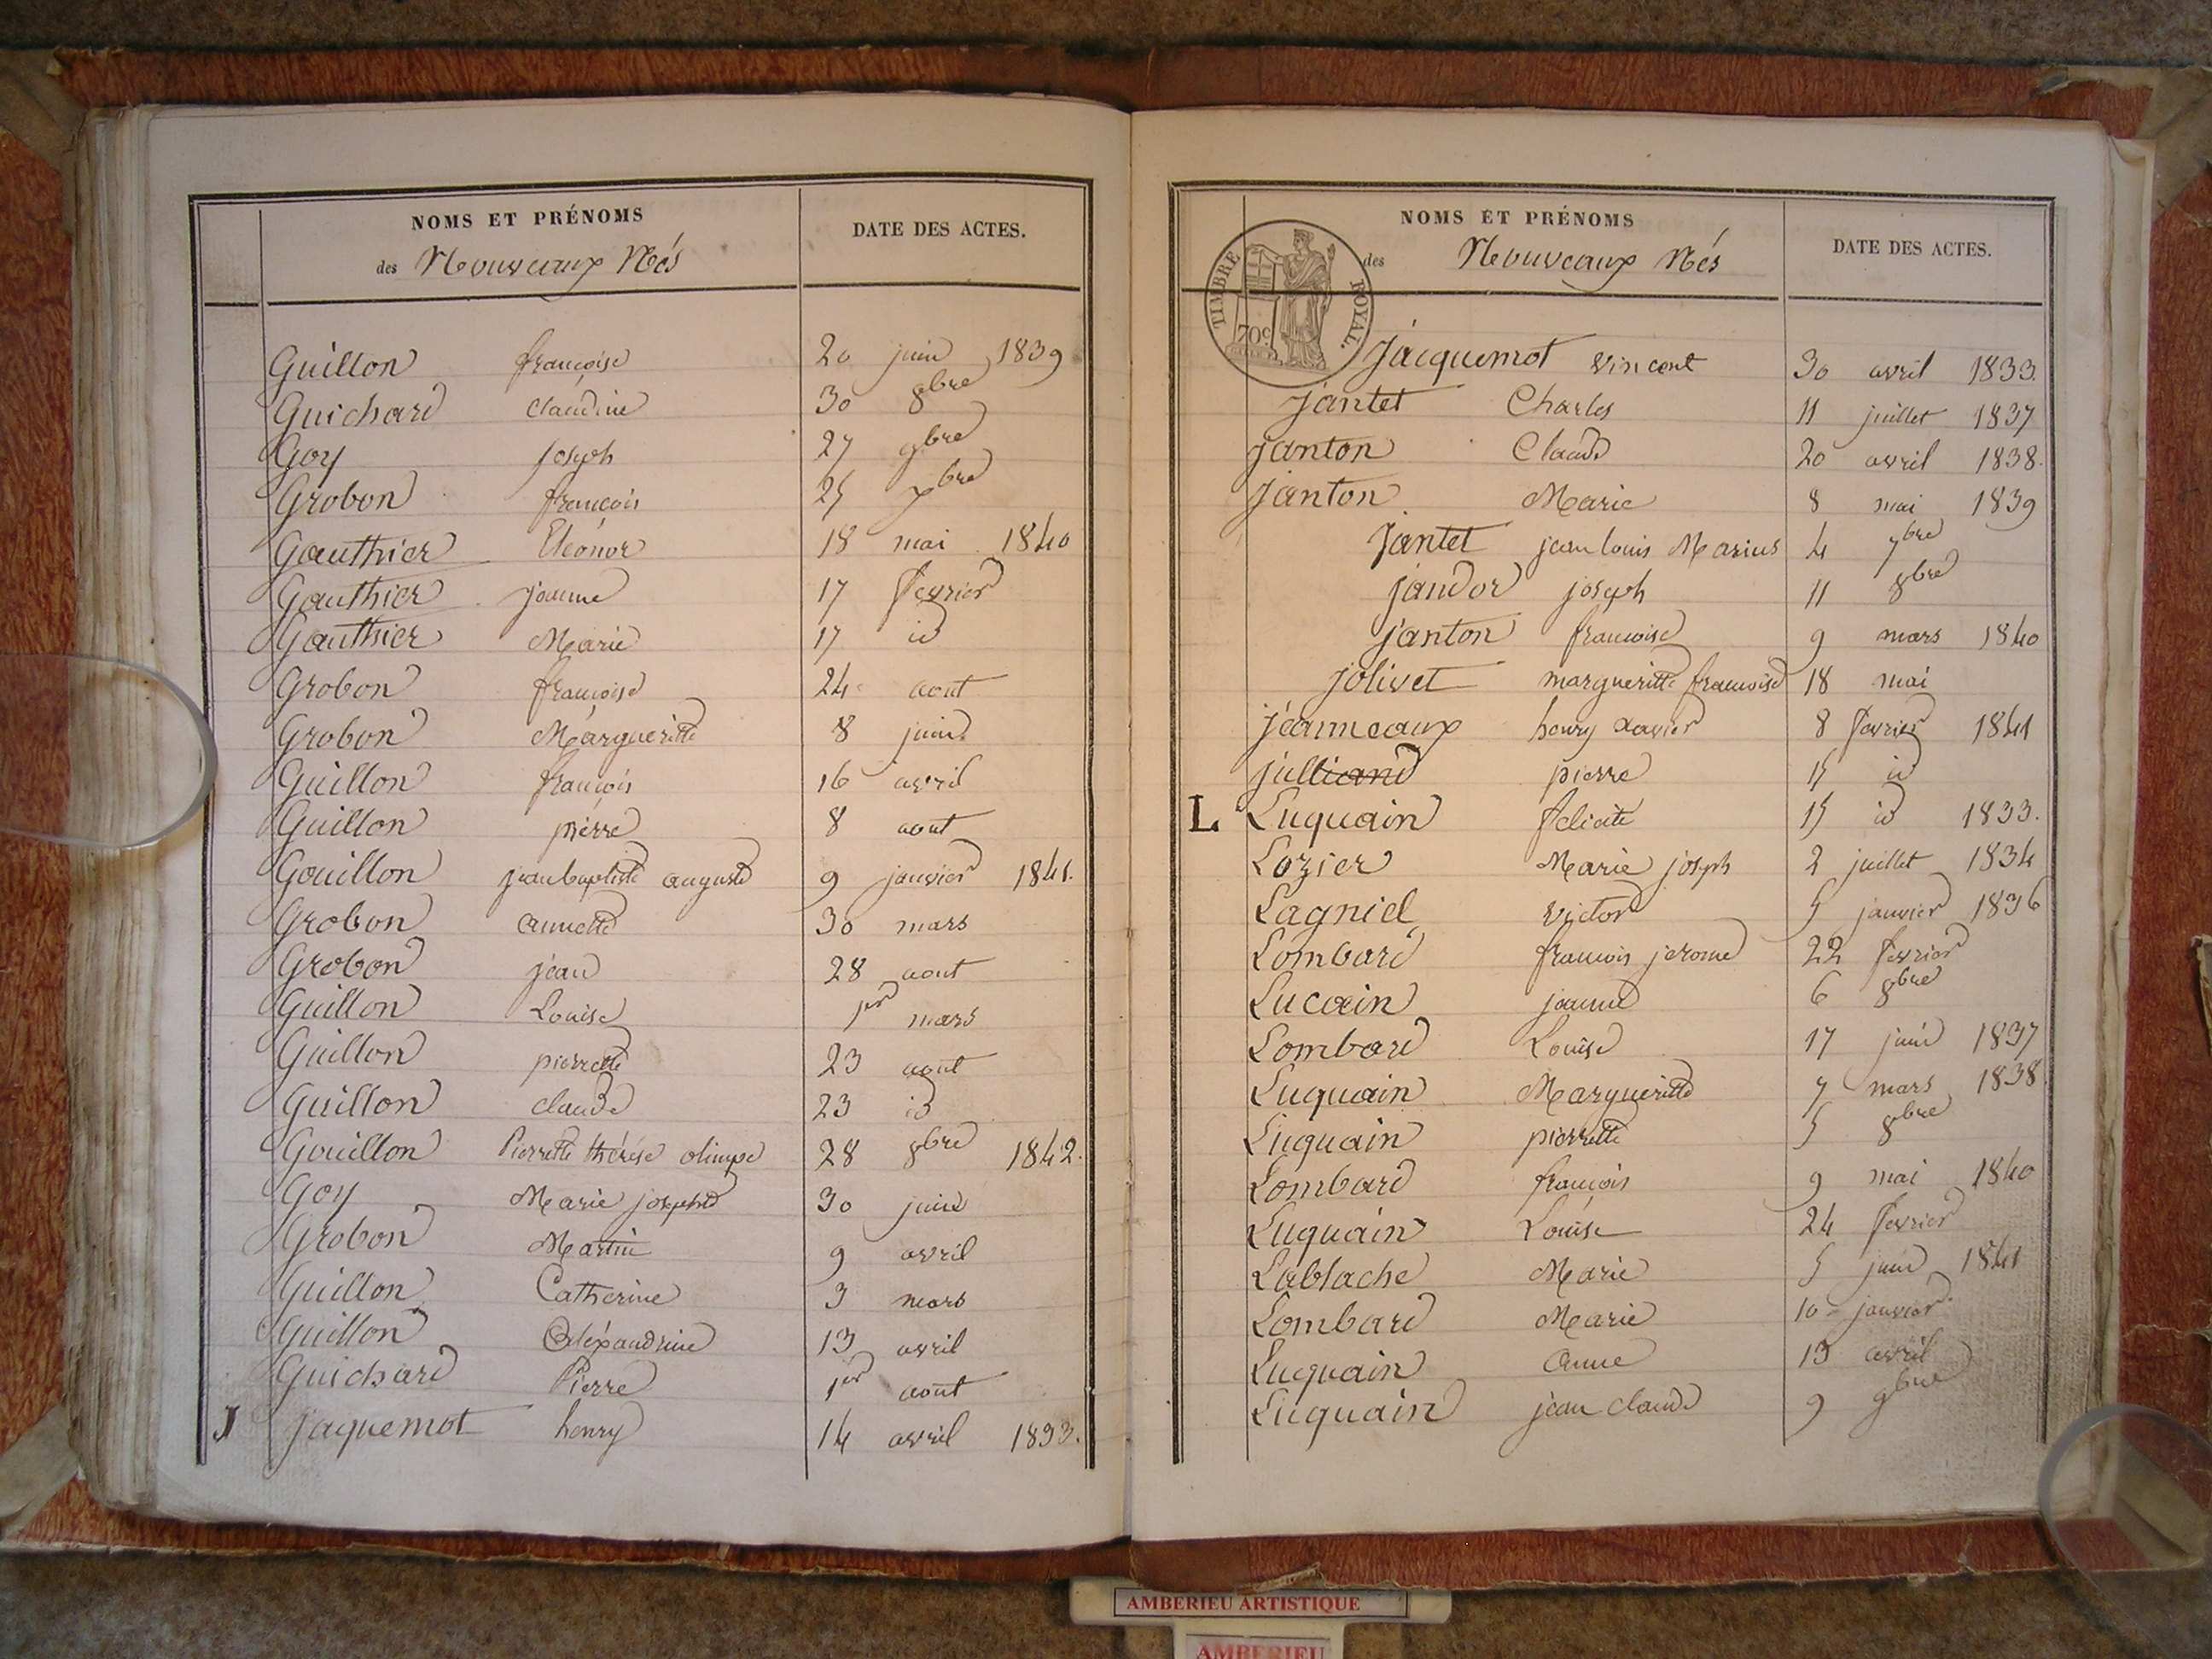 NOMS ET PRÉNOMS
des Nouveaux Nés
DATE DES ACTES.
Guillon françoise 20 juin 1839
Guichard claudine 30 8bre
Goy Joseph 27 9bre
Grobon françois 25 7bre
Gauthier Eléonor 18 mai 1840
Gauthier jeanne 17 fevrier
Gauthier Marie 17 id
Grobon françoise 24 aout
Grobon Margueritte 8 juin
Guillon françois 16 avril
Guillon pierre 8 aout
Gouillon jean baptiste auguste 9 janvier 1841.
Grobon annette 30 mars
Grobon jean 28 aout
Guillon Louise 1er mars
Guillon pierrette 23 aout
Guillon claude 23 id
Gouillon Pierrette thérése olimpe 28 8bre 1842.
Goy Marie josephte 30 juin
Grobon Martin 9 avril
Guillon Catherine 3 mars
Guillon Alexandrine 13 avril
Guichard Pierre 1er aout
J jaquemot henry 14 avril 1833.
NOMS ET PRÉNOMS
des Nouveaux Nés
DATE DES ACTES.
TIMBRE ROYAL.
70c
Jacquemot vincent 30 avril 1833.
jantet Charles 11 juillet 1837
janton Claude 20 avril 1838.
janton Marie 8 mai 1839
jantet jean louis Marius 4 7bre
jandor joseph 11 8bre
janton francoise 9 mars 1840
jolivet margueritte francoise 18 mai
jeanneaux henry xavier 8 fevrier 1841
julliand pierre 15 id
L Luquain felicité 15 id 1833.
Lozier Marie joseph 2 juillet 1834
Lagniel victor 5 janvier 1836
Lombard francois jerome 22 fevrier
Lucain jeanne 6 8bre
Lombard Louise 17 juin 1837
Luquain Margueritte 7 mars 1838.
Luquain pierrette 5 8bre
Lombard françois 9 mai 1840
Luquain Louise 24 fevrier
Lablache Marie 5 juin 1841
Lombard Marie 10 janvier
Luquain anne 13 avril
Luquain jean claude 9 9bre
AMBERIEU ARTISTIQUE
AMBERIEU